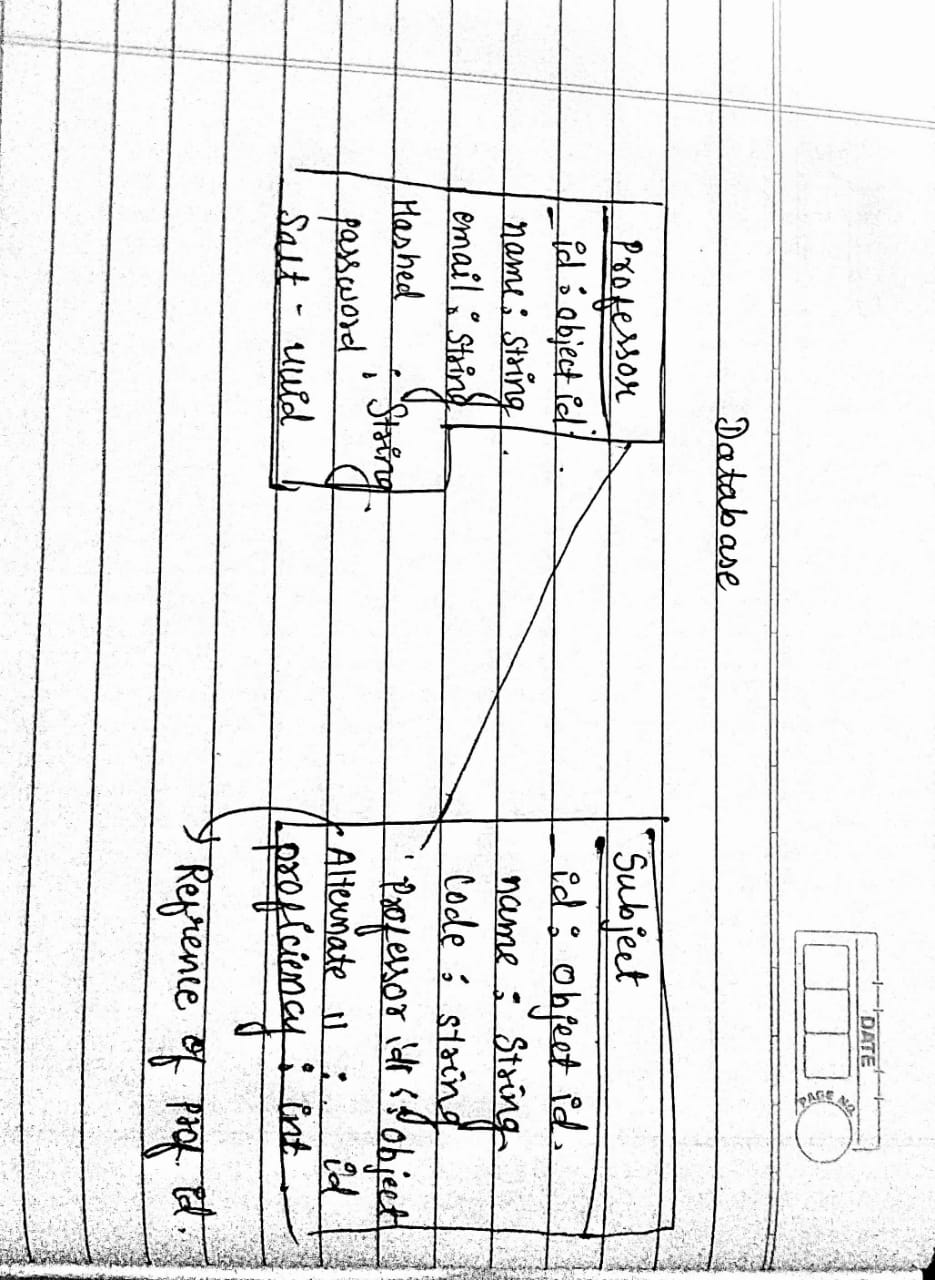 DATE
PAGE NO.
Database
Professor
_id : object id
name : string
email : string
Hashed
password : String
Salt - uuid
Subject
_id : Object id.
name : String
Code : string
Professor id : Object
Alternate " : id
proficiency : int.
Refrence of prof. id.